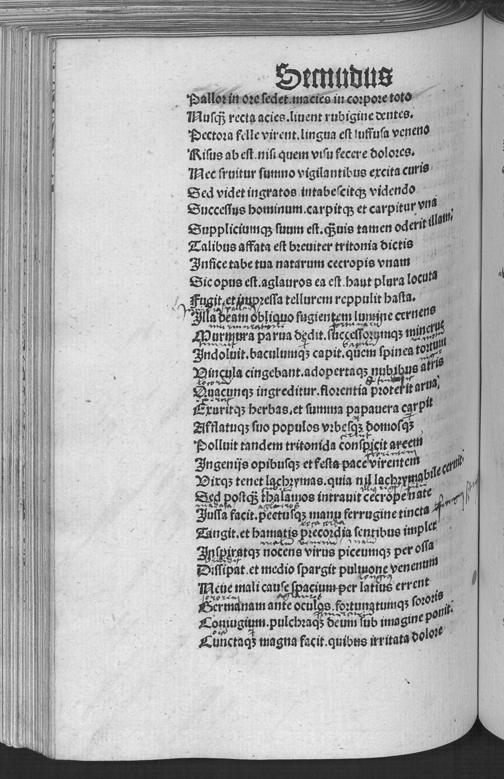 Secundus
Pallor in ore sedet.macies in corpore toto
Nusqꝫ recta acies.liuent rubigine dentes.
Pectora felle virent.lingua est suffusa veneno
Risus ab est.nisi quem visu fecere dolores.
Nec fruitur sumno vigilantibus excita curis
Sed videt ingratos intabescitqꝫ videndo
Successus hominum.carpitqꝫ et carpitur vna
Suppliciumqꝫ suum est.qꝫuis tamen oderit illam:
Talibus affata est breuiter tritonia dictis
Infice tabe tua natarum cecropis vnam
Sic opus est.aglauros ea est.haut plura locuta
Fugit.et impressa tellurem reppulit hasta.
Illa deam obliquo fugientem lumine cernens
Murmura parua dedit.successorumqꝫ minerue
Indoluit.baculumqꝫ capit.quem spinea tortum
Vincula cingebant.adopertaqꝫ nubibus atris
Quacunqꝫ ingreditur.florentia proterit arua:
Exuritqꝫ herbas.et summa papauera carpit
Afflatuqꝫ suo populos vrbesqꝫ domosqꝫ
Polluit tandem tritonida conspicit arcem
Ingenijs opibusqꝫ et festa pace virentem
Vixqꝫ tenet lachrymas.quia nil lachrymabile cernit:
Sed postqꝫ thalamos intrauit cecrope nate
Iussa facit.pectusqꝫ manu ferrugine tincta
Tangit.et hamatis precordia sentibus implet
Inspiratqꝫ nocens virus piceumqꝫ per ossa
Dissipat.et medio spargit pulmone venenum
Neue mali cause spacium per latius errent
Germanam ante oculos.fortunatumqꝫ sororis
Coniugium.pulchraqꝫ deum sub imagine ponit:
Cunctaqꝫ magna facit.quibus irritata dolore